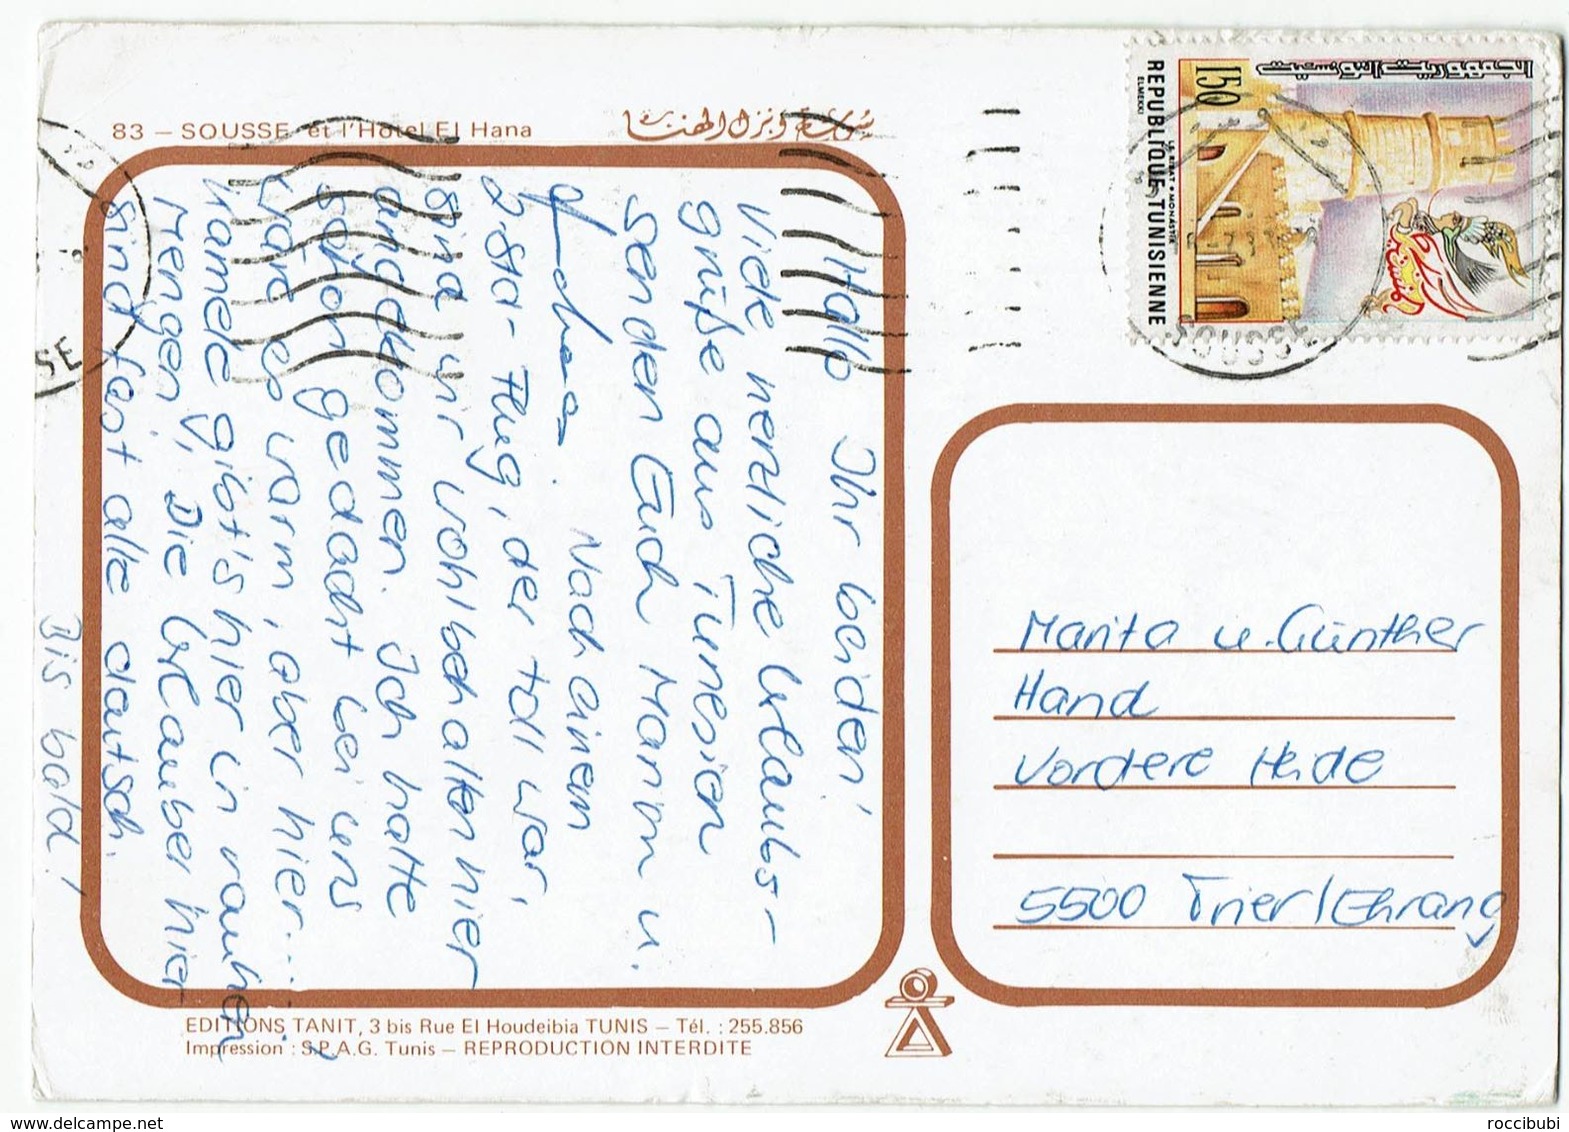 83 — SOUSSE et l'Hôtel El Hana
سوسة ونزل الهناء
REPUBLIQUE TUNISIENNE
150
ELMEKKI
LE RIBAT • MONASTIR
الجمهورية التونسية
SOUSSE
SSE
Hallo Ihr beiden!
Viele herzliche Urlaubs-
grüße aus Tunesien
senden Euch Marion u.
Nach einem
2 Std.- Flug, der toll war,
sind wir wohlbehalten hier
angekommen. Ich hatte
schon gedacht bei uns
wäre es warm, aber hier....
Kamele gibt's hier in rauhen
Mengen, Die Urlauber hier
sind fast alle deutsch.
Bis bald!
Marita u. Günther
Hand
Vordere Heide
5500 Trier/Ehrang
EDITIONS TANIT, 3 bis Rue El Houdeibia TUNIS — Tél. : 255.856
Impression : S.P.A.G. Tunis — REPRODUCTION INTERDITE
delcampe.net
roccibubi